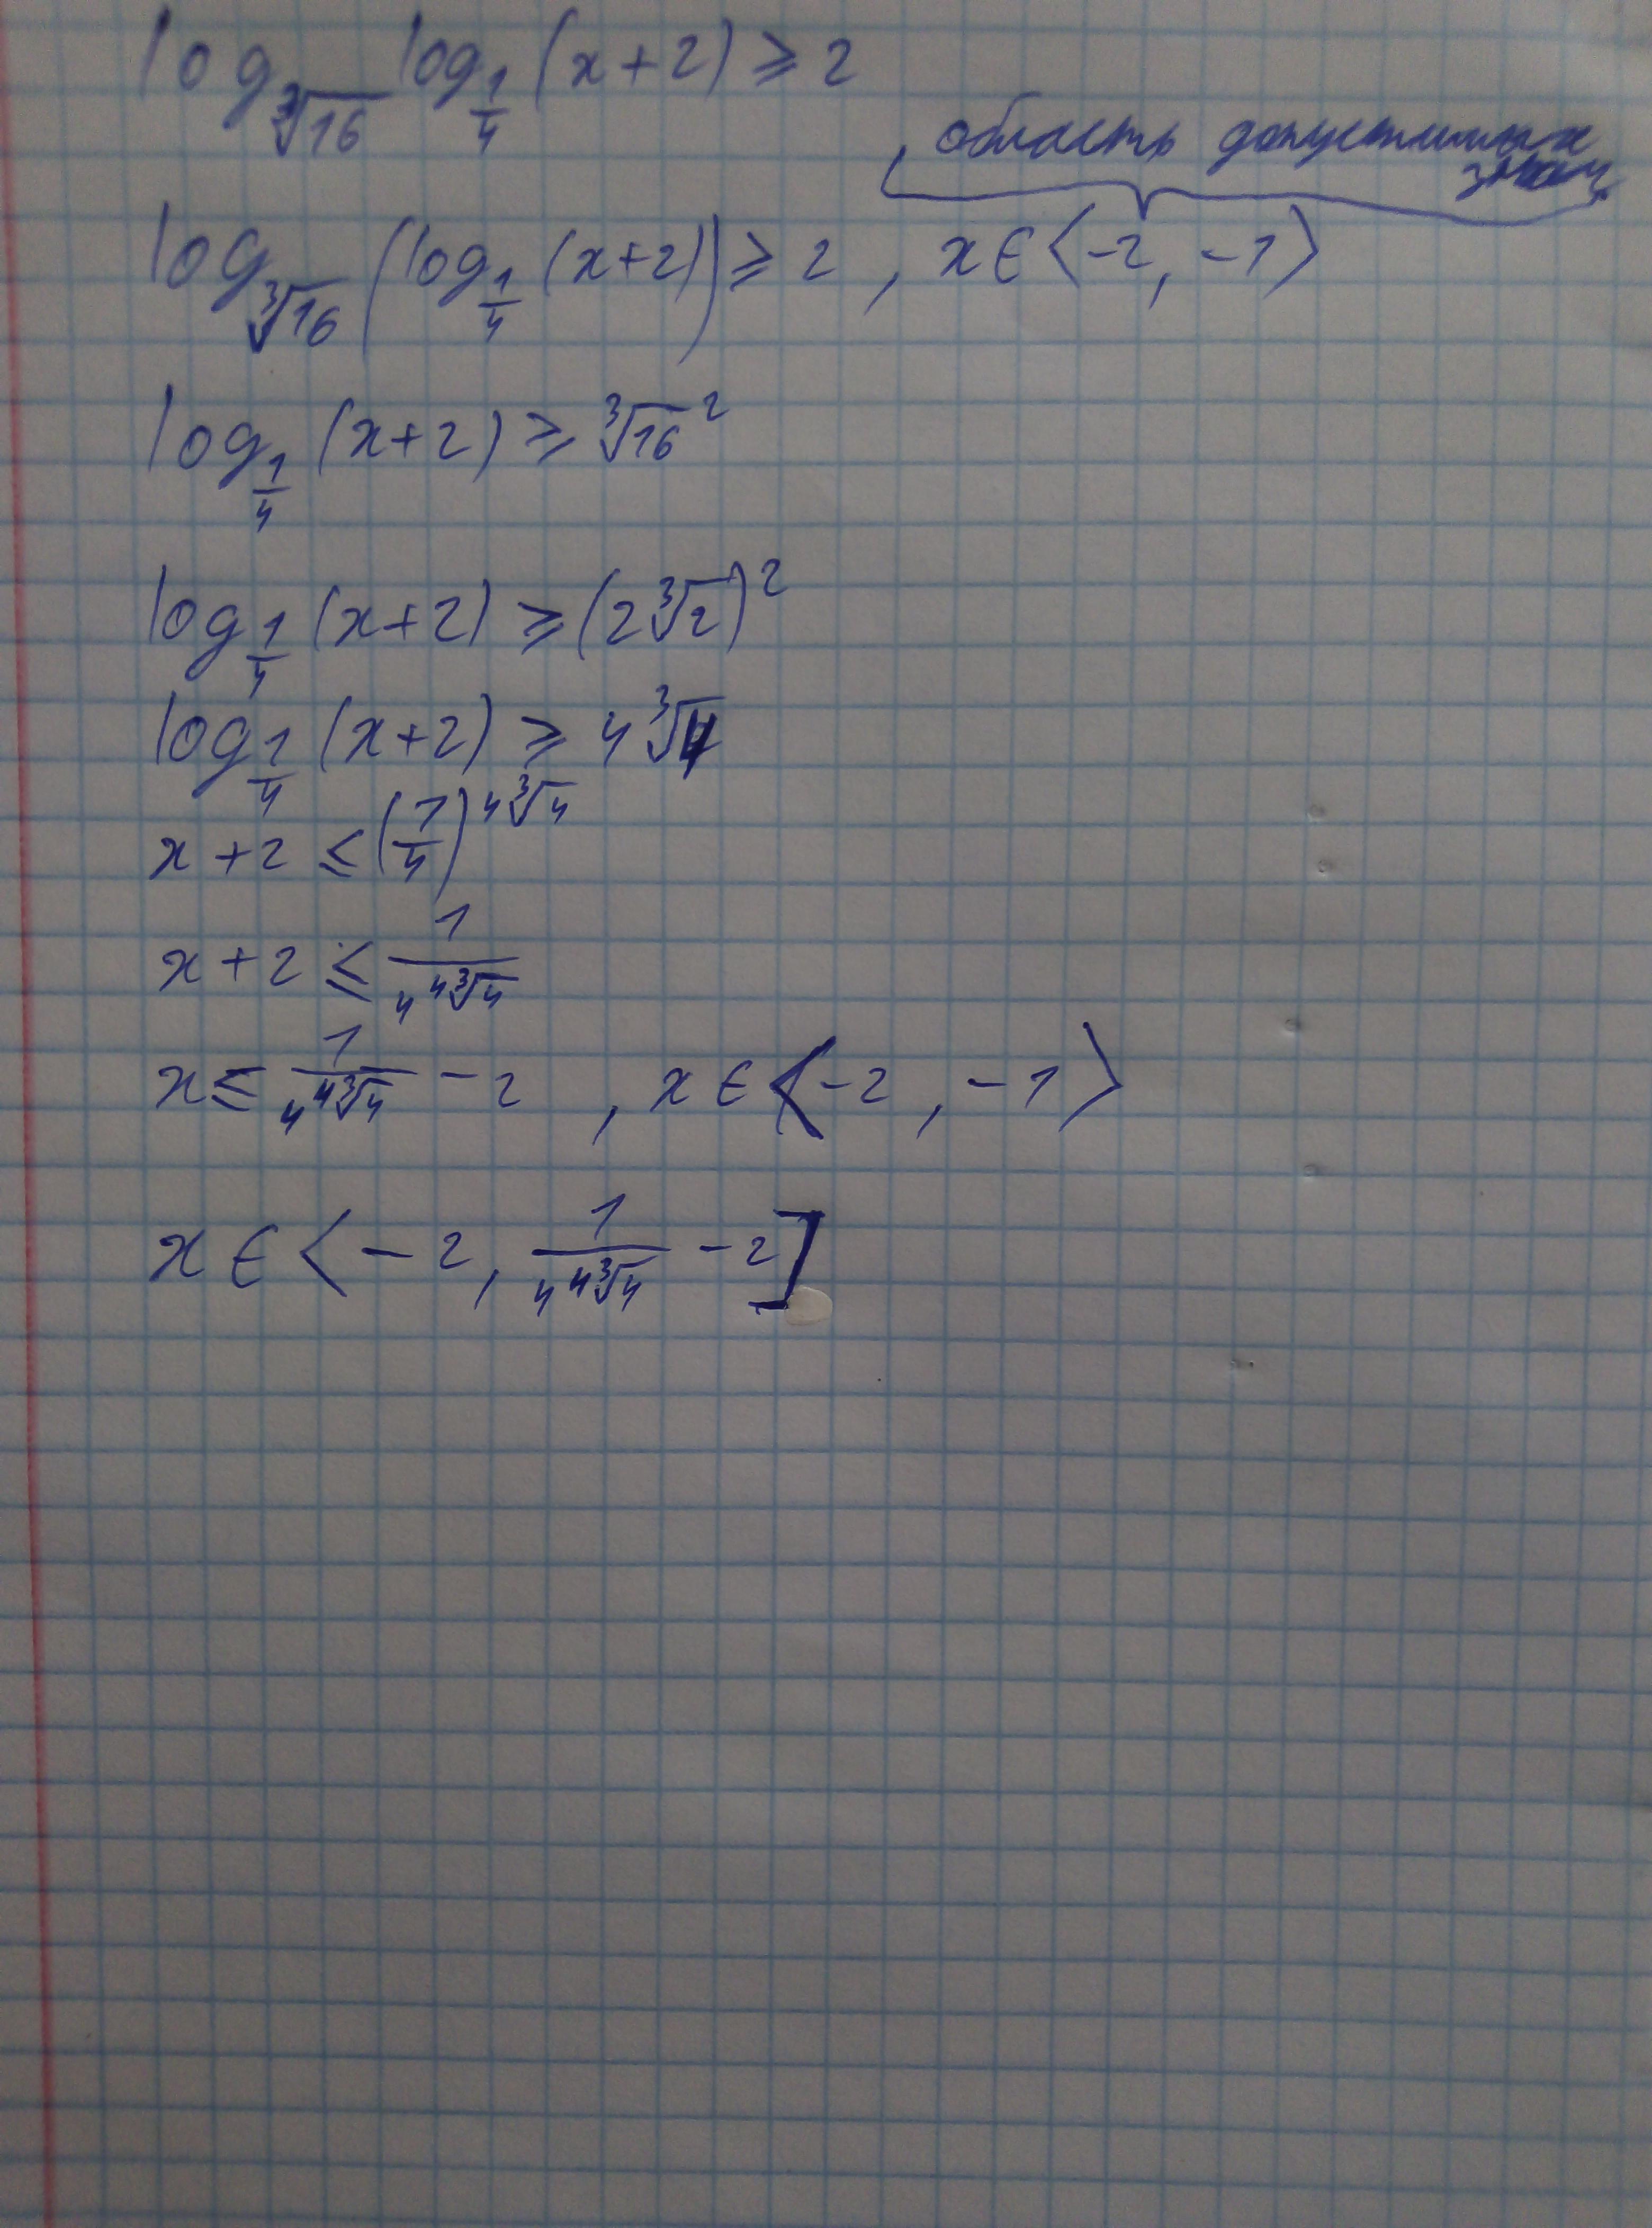 log_∛16 log_1/4 (x+2) ≥ 2
область допустимых
знач
log_∛16 (log_1/4 (x+2)) ≥ 2 , x ∈ ⟨-2, -1⟩
log_1/4 (x+2) ≥ ∛16²
log_1/4 (x+2) ≥ (2∛2)²
log_1/4 (x+2) ≥ 4∛4
x+2 ≤ (1/4)^(4∛4)
x+2 ≤ 1/4^(4∛4)
x ≤ 1/4^(4∛4) - 2 , x ∈ ⟨-2, -1⟩
x ∈ ⟨-2, 1/4^(4∛4) - 2]